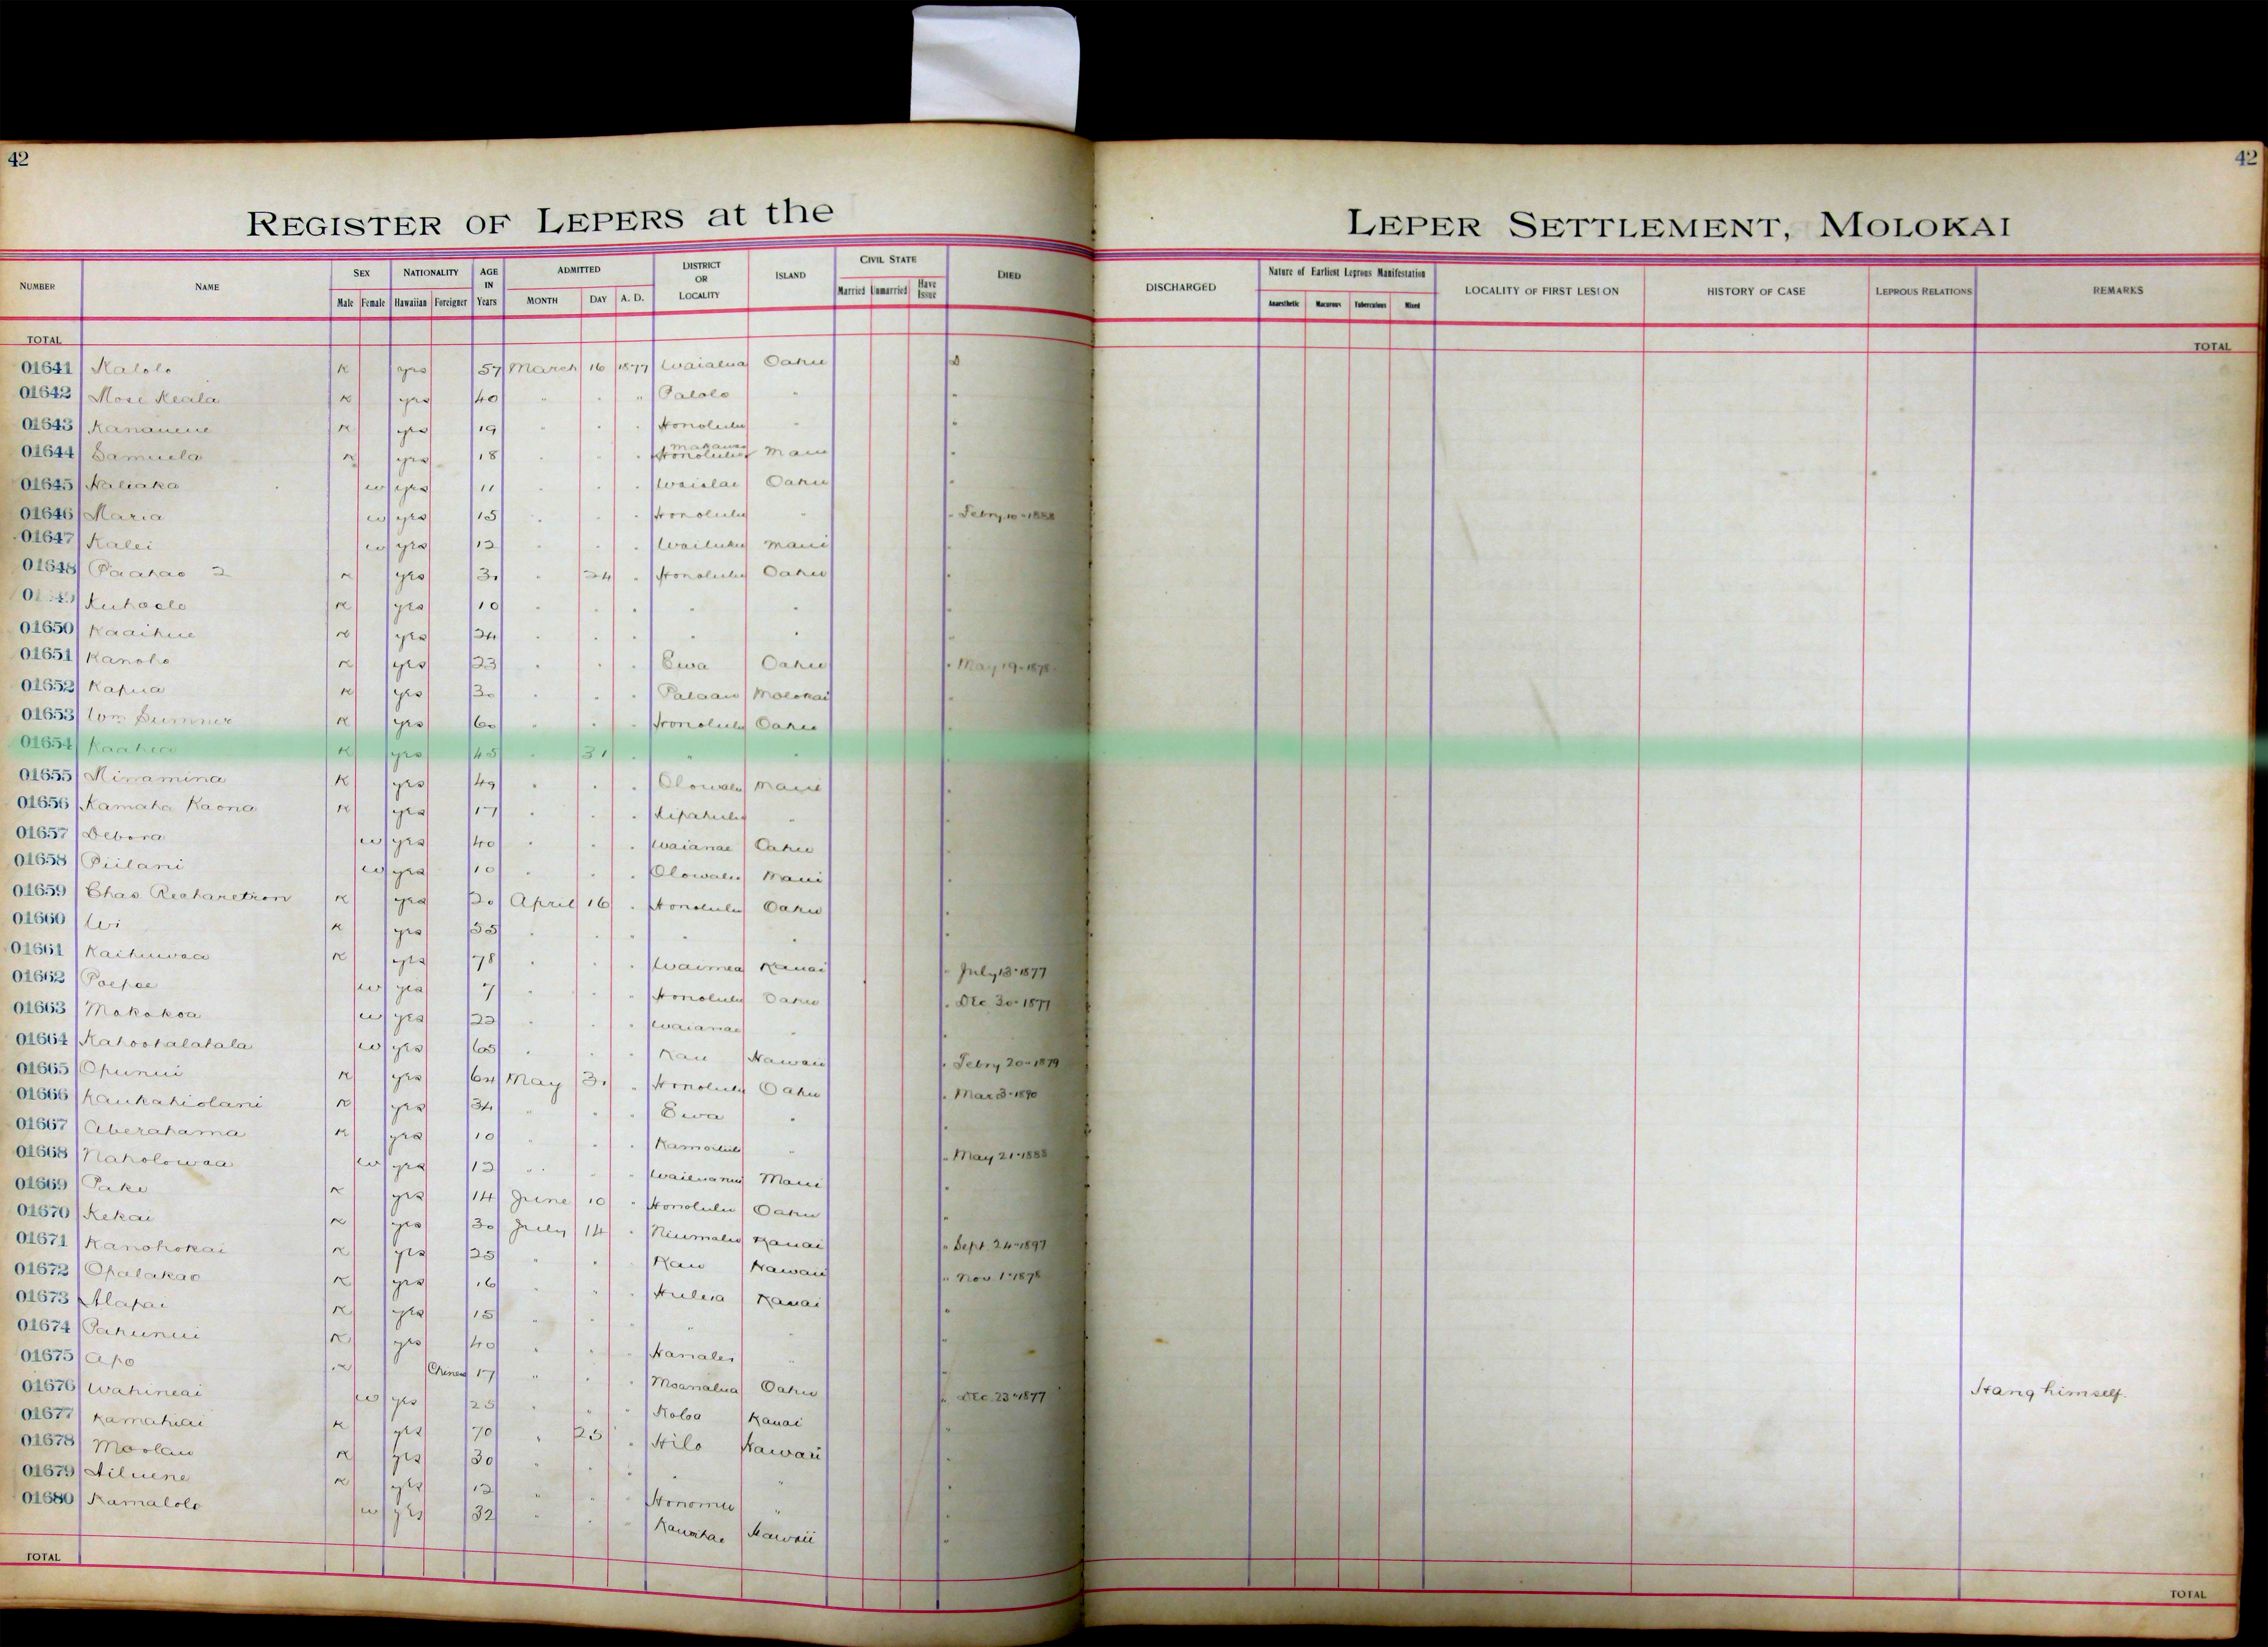 42
42
REGISTER OF LEPERS at the LEPER SETTLEMENT, MOLOKAI
NUMBER NAME SEX NATIONALITY AGE IN Years ADMITTED DISTRICT OR LOCALITY ISLAND CIVIL STATE DIED DISCHARGED Nature of Earliest Leprous Manifestation LOCALITY OF FIRST LESION HISTORY OF CASE LEPROUS RELATIONS REMARKS
Male Female Hawaiian Foreigner MONTH DAY A. D. Married Unmarried Have Issue Anaesthetic Macurous Tuberculous Mixed
TOTAL TOTAL
01641 Kalolo K yes 57 March 16 1877 Waialua Oahu D
01642 Mose Keala K yes 40 " " " Palolo " "
01643 Kananene K yes 19 " " " Honolulu " "
01644 Samuela K yes 18 " " " Makawao Honolulu Maui "
01645 Naliaka w yes 11 " " " Waialae Oahu "
01646 Maria w yes 15 " " " Honolulu " " Febry 10-1888
01647 Kalei w yes 12 " " " Wailuku Maui "
01648 Paahao 2 K yes 30 " 24 " Honolulu Oahu "
Kuhaelo K yes 10 " " " " " "
01650 Kaaihue K yes 24 " " " " " "
01651 Kanoho K yes 23 " " " Ewa Oahu " May 19-1878
01652 Kapua K yes 30 " " " Palaau Molokai "
01653 Wm Sumner K yes 60 " " " Honolulu Oahu "
01654 Kaahua K yes 45 " 31 " " " "
01655 Minamina K yes 49 " " " Olowalu Maui "
01656 Kamaha Kaona K yes 17 " " " Kipahulu " "
01657 Debora w yes 40 " " " Waianae Oahu "
01658 Piilani w yes 10 " " " Olowalu Maui "
01659 Chas Richardson K yes 20 April 16 " Honolulu Oahu "
01660 Wi K yes 35 " " " " " "
01661 Kaihuwaa K yes 78 " " " Waimea Kauai " July 13-1877
01662 Poepoe w yes 7 " " " Honolulu Oahu " Dec 30-1877
01663 Makakoa w yes 22 " " " Waianae " "
01664 Kahoohalahala w yes 65 " " " Kau Hawaii " Febry 20-1879
01665 Opunui K yes 64 May 31 " Honolulu Oahu " Mar 3-1890
01666 Kaukahiolani K yes 34 " " " Ewa " "
01667 Aberahama K yes 10 " " " Kamoiliili " " May 21-1888
01668 Naholowaa w yes 12 " " " Wailuanui Maui "
01669 Pake K yes 14 June 10 " Honolulu Oahu "
01670 Kekai K yes 30 July 14 " Niumalu Kauai " Sept 24-1897
01671 Kanohokai K yes 25 " " " Kau Hawaii " Nov 1-1878
01672 Opalakao K yes 16 " " " Huleia Kauai "
01673 Alapai K yes 15 " " " " " "
01674 Pahunui K yes 40 " " " Hanalei " "
01675 Apo K Chinese 17 " " " Moanalua Oahu " Dec 23-1877 Hang himself.
01676 Wahineai w yes 25 " " " Koloa Kauai "
01677 Kamahiai K yes 70 " 25 " Hilo Hawaii "
01678 Moolau K yes 30 " " " " " "
01679 Hiluene K yes 12 " " " Honomu " "
01680 Kamalolo w yes 32 " " " Kawaihae Hawaii "
TOTAL TOTAL